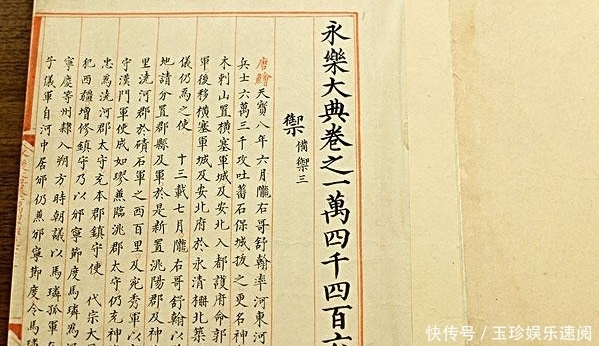 永樂大典卷之一萬四千四百六
禦 備禦三
唐 天寶八年六月隴右哥舒翰率河東河
兵士六萬三千攻吐蕃石保城拔之更名神
木剌山置橫塞軍城及安北入都護府命郭
軍後移橫塞軍城及安北府於永清柵北築
儀仍爲之使 十三載七月隴右哥舒翰以
地請分置郡縣及軍於是新置洮陽郡及神
里澆河郡於磧石軍之西百里及宛秀軍以
守漢門軍使成如璆兼臨洮郡太守仍充神
忠爲澆河郡太守充本郡鎮守使 代宗大
犯西疆增修鎮守乃以邠寧節度馬璘爲
寧慶等州隸入朔方時朝議以馬璘孤軍
子儀軍自河中居邠仍兼邠寧節度令馬璘
快传号 / 玉珍娱乐速阅